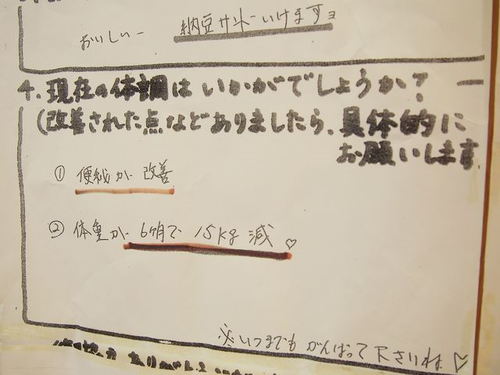 おいしいー 納豆サンドいけますョ
4.現在の体調はいかがでしょうか?
(改善された点などありましたら、具体的に
お願いします
① 便秘が改善
② 体重が 6ヶ月で 15kg 減♡
※いつまでも がんばって下さいね♡
ありがとう